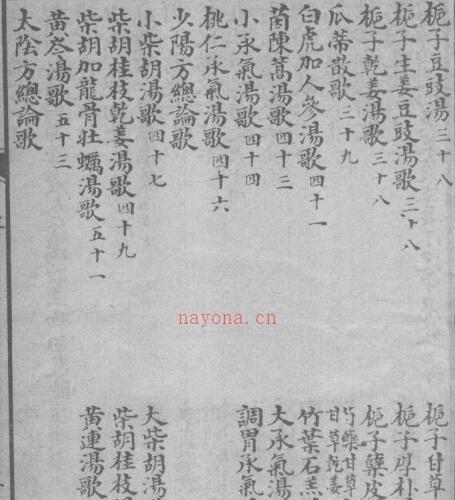 梔子豆豉湯三十八
梔子甘草
梔子生姜豆豉湯歌三十八
梔子厚朴
梔子乾姜湯歌三十八
梔子蘗皮
瓜蒂散歌三十九
芍藥甘草
甘草乾姜
白虎加人參湯歌四十一
竹葉石羔
茵陳蒿湯歌四十三
大承氣湯
小承氣湯歌四十四
調胃承氣
桃仁承氣湯歌四十六
少陽方總論歌
小柴胡湯歌四十七
大柴胡湯
柴胡桂枝乾姜湯歌四十九
柴胡桂枝
柴胡加龍骨牡蠣湯歌五十一
黃連湯歌
黃芩湯歌五十三
太陰方總論歌
nayona.cn